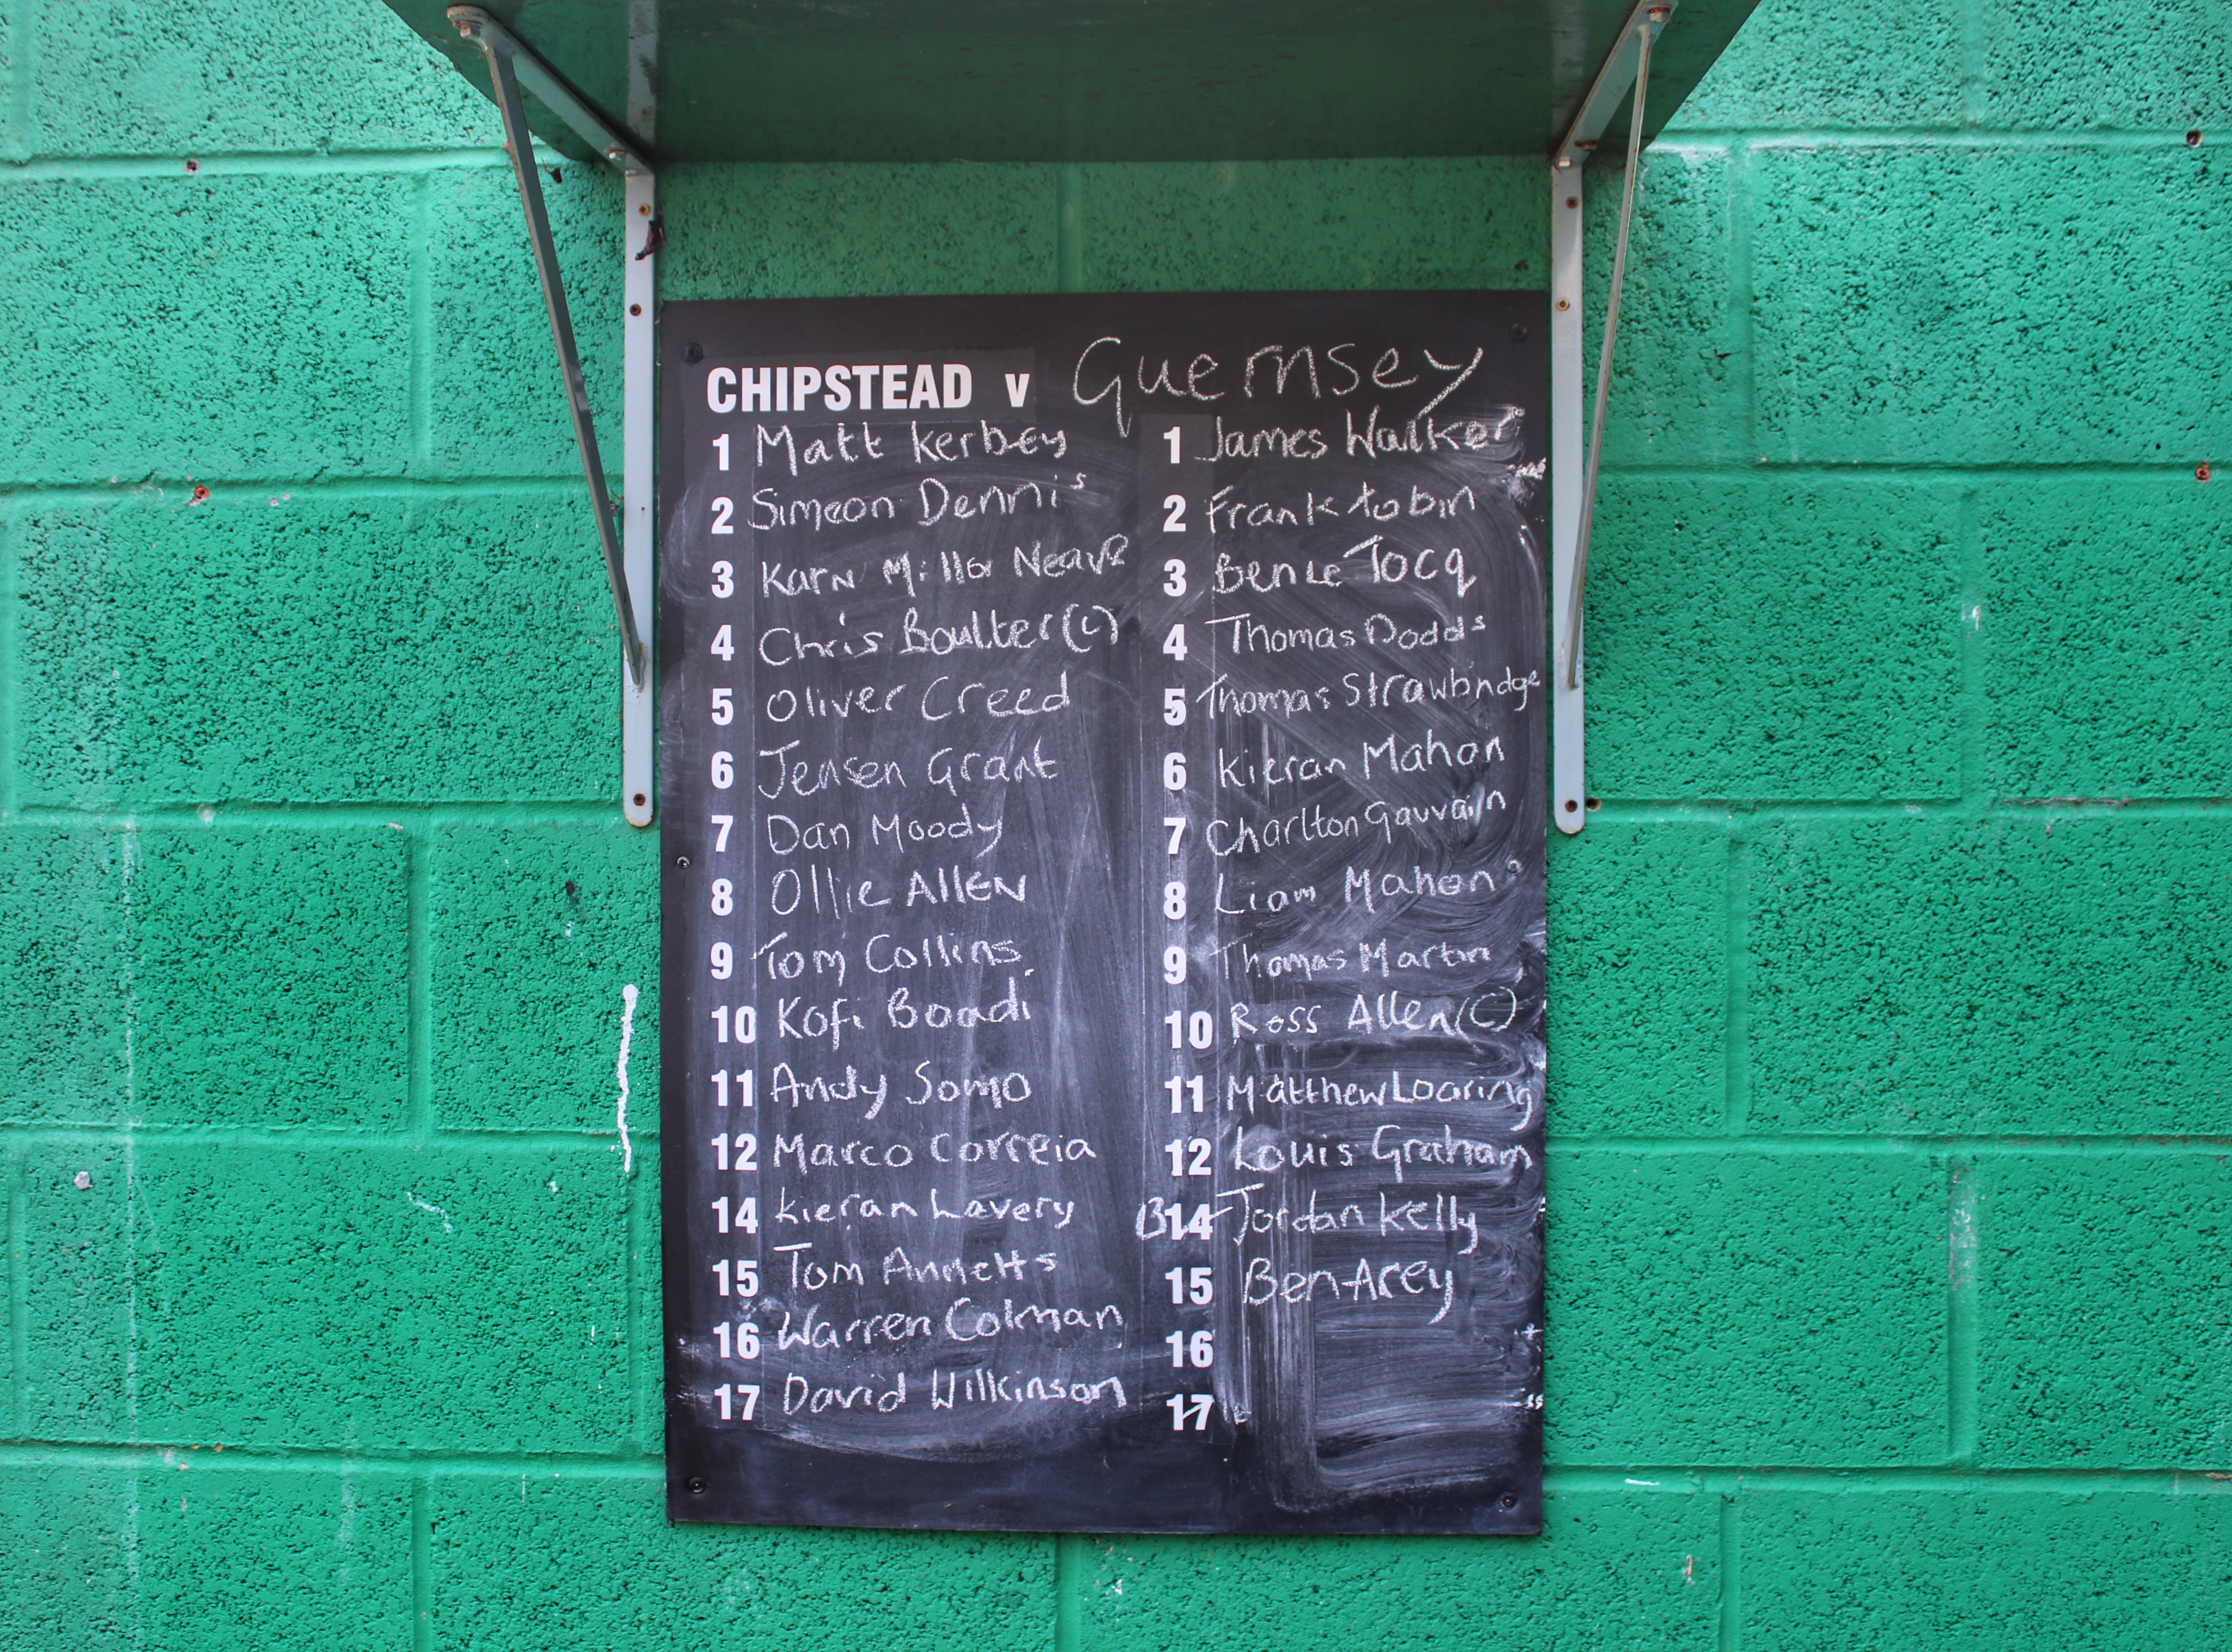 CHIPSTEAD v Guernsey
1 Matt Kerbey 1 James Walker
2 Simeon Dennis 2 Frank tobin
3 Karn Miller Neave 3 Ben Le Tocq
4 Chris Boulter (C) 4 Thomas Dodds
5 Oliver Creed 5 Thomas Strawbridge
6 Jensen Grant 6 Kieran Mahon
7 Dan Moody 7 Charlton Gauvain
8 Ollie ALLEN 8 Liam Mahon
9 Tom Collins 9 Thomas Martin
10 Kofi Boadi 10 Ross Allen (C)
11 Andy Somo 11 Matthew Loaring
12 Marco Correia 12 Louis Graham
14 Kieran Lavery 14 Jordan Kelly
15 Tom Annetts 15 Ben Acey
16 Warren Colman 16
17 David Wilkinson 17